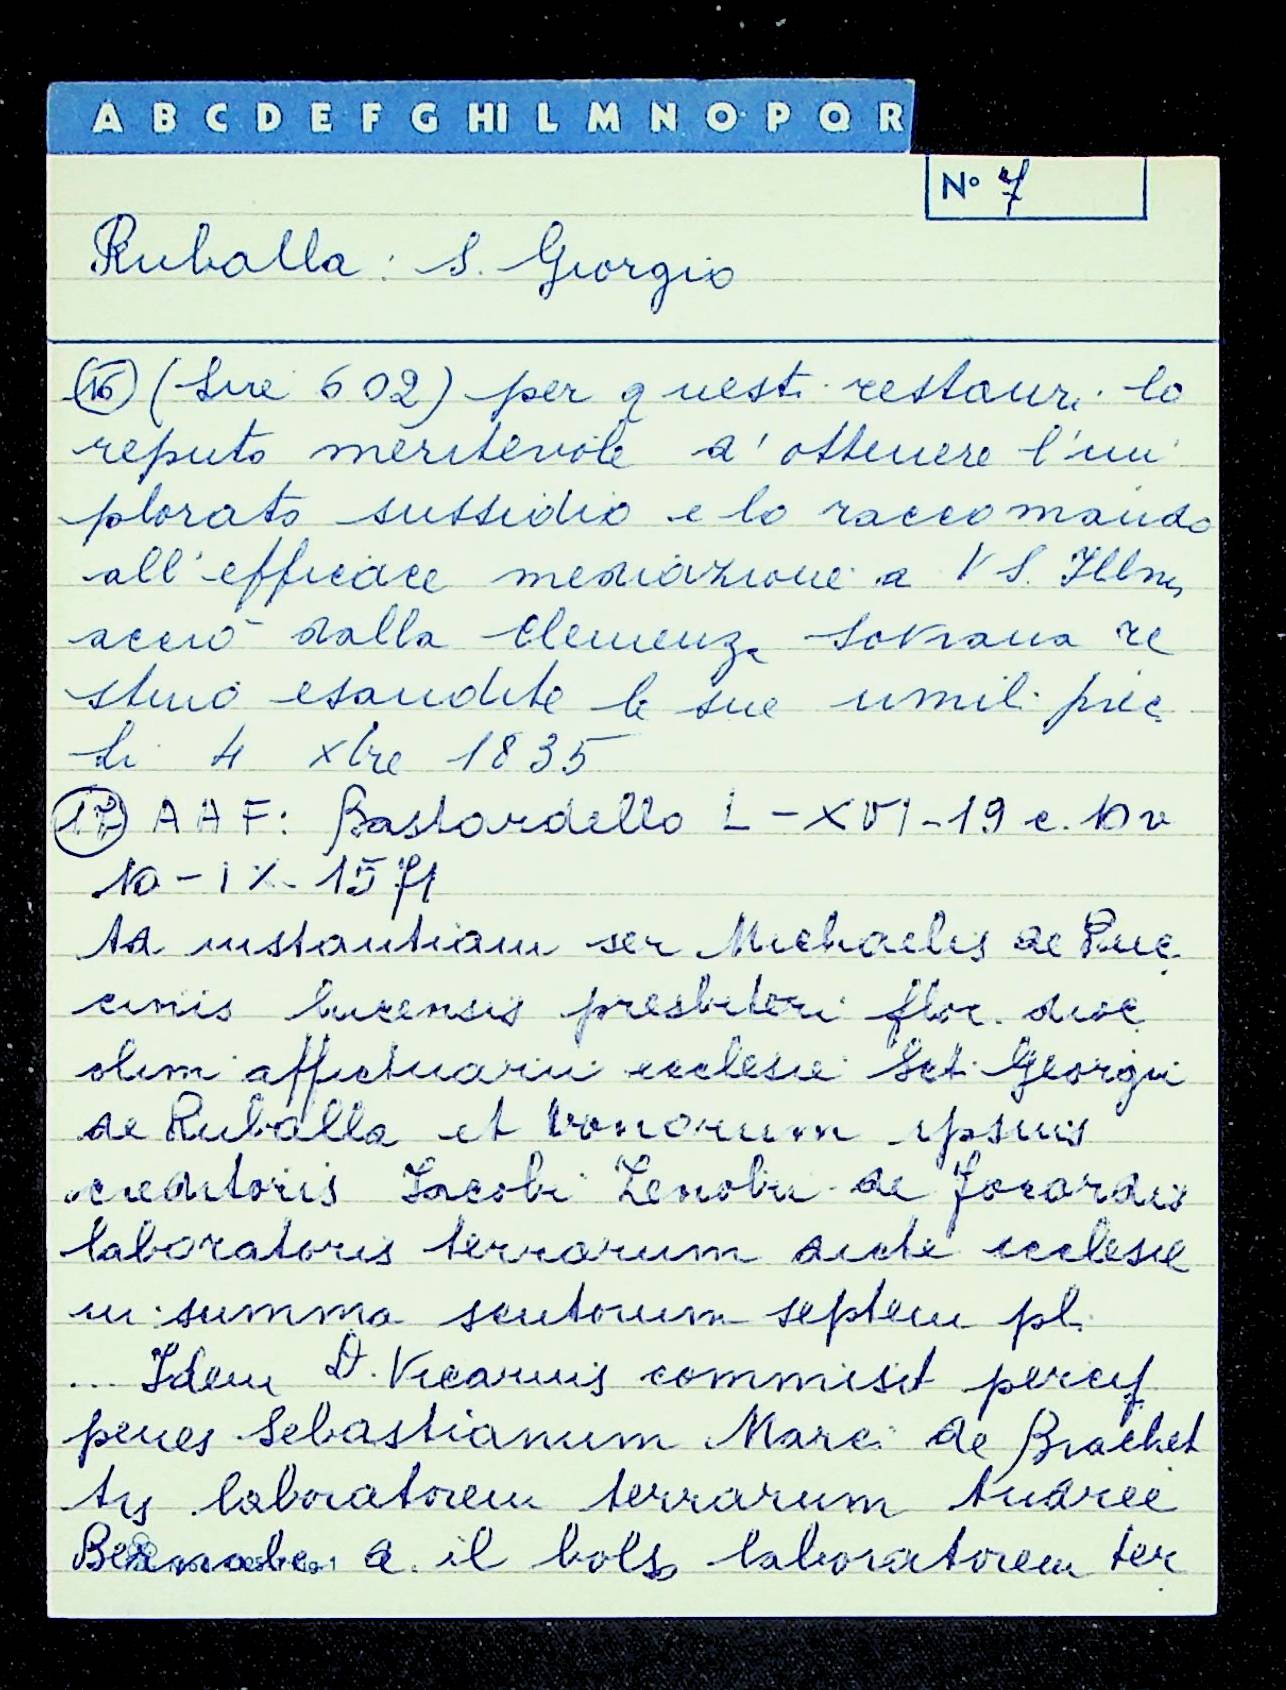 A B C D E F G HI L M N O P Q R
N° 7
Ruballa: S. Giorgio
(16) (Lire 602) per questi restauri lo
reputo meritevole d'ottenere l'im
plorato sussidio e lo raccomando
all'efficace mediazione a VS. Illma
acciò dalla Clemenza Sovrana re
stino esaudite le sue umili prec
li 4 xbre 1835
(17) AAF: Bastardello L-XVI-19 c. 10v
10-IX-1571
Ad instantiam ser Michaelis de Puc
cinis lucensis presbiteri flor. dioc
olim affictuarii ecclesie Scti Georgii
de Ruballa et bonorum ipsius
creditoris Iacobi Zenobii de Jocardis
laboratoris terrarum dicte ecclesie
in summa scutorum septem pl.
... Idem D. Vicarius commisit
penes Sebastianum Marci de Brachet
tis laboratorem terrarum Andree
a. il laboratorem ter